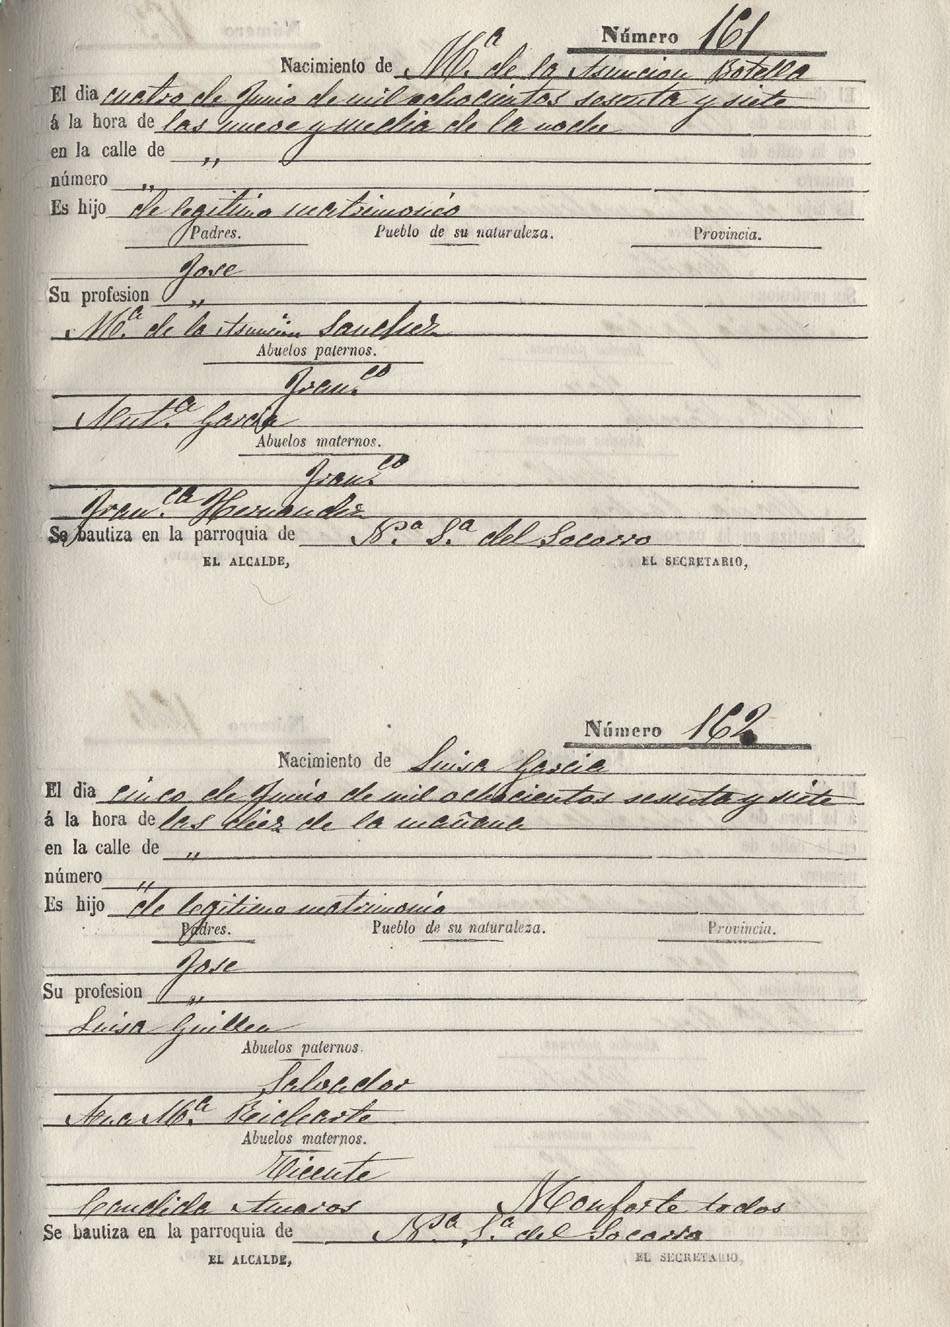 Número 161
Nacimiento de Mª de la Asuncion Botella
El dia cuatro de Junio de mil ochocientos sesenta y siete
á la hora de las nueve y media de la noche
en la calle de „
número „
Es hijo de legitimo matrimonio
Padres. Pueblo de su naturaleza. Provincia.
Jose
Su profesion „
Mª de la Asuncion Sanchez
Abuelos paternos.
Franco
Antª Garcia
Abuelos maternos.
Franco
Franca Hernandez
Se bautiza en la parroquia de Nª Sª del Socorro
EL ALCALDE, EL SECRETARIO,
Número 162
Nacimiento de Luisa Garcia
El dia cinco de Junio de mil ochocientos sesenta y siete
á la hora de las diez de la mañana
en la calle de „
número „
Es hijo de legitimo matrimonio
Padres. Pueblo de su naturaleza. Provincia.
Jose
Su profesion „
Luisa Guillen
Abuelos paternos.
Salvador
Ana Mª
Abuelos maternos.
Vicente
Candida Amoros Monforte todos
Se bautiza en la parroquia de Nsa Sª del Socorro
EL ALCALDE, EL SECRETARIO,